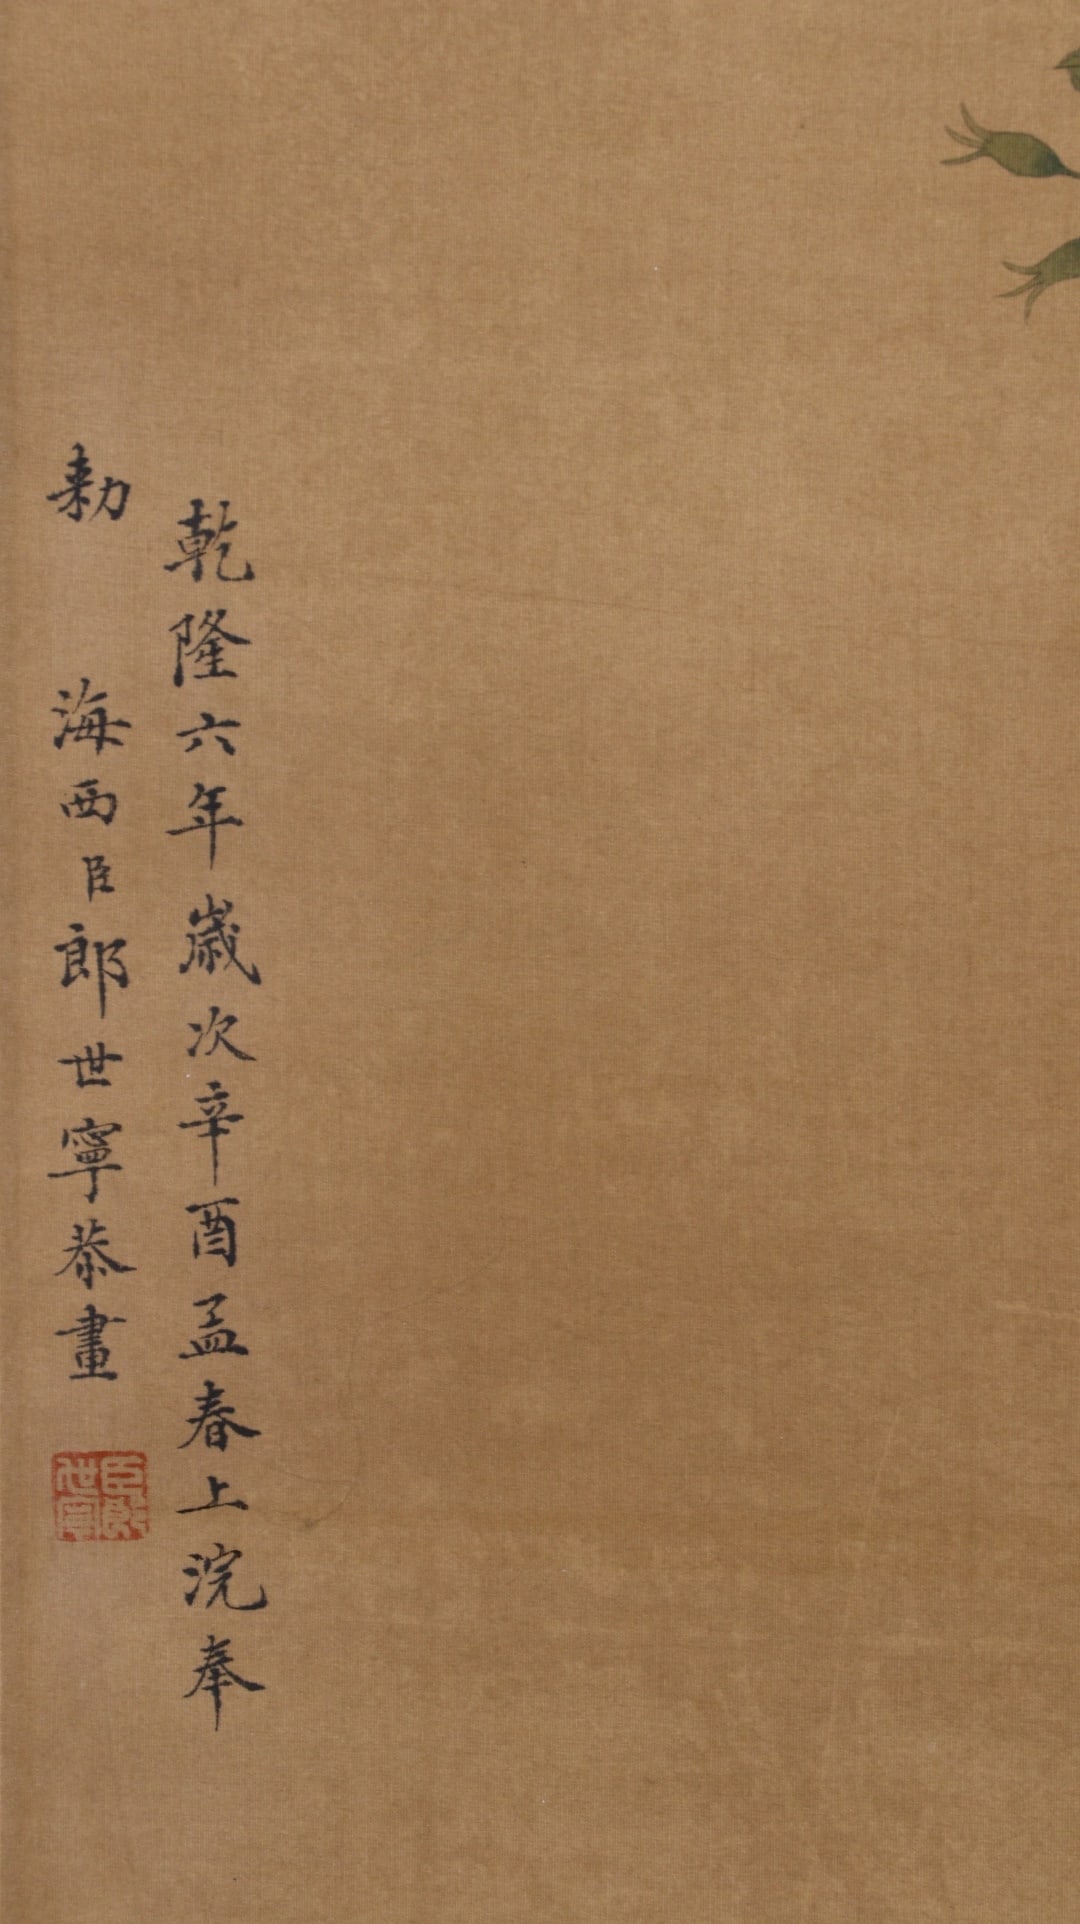 乾隆六年歲次辛酉孟春上浣奉
勅 海西臣郎世寧恭畫
臣郎世寧